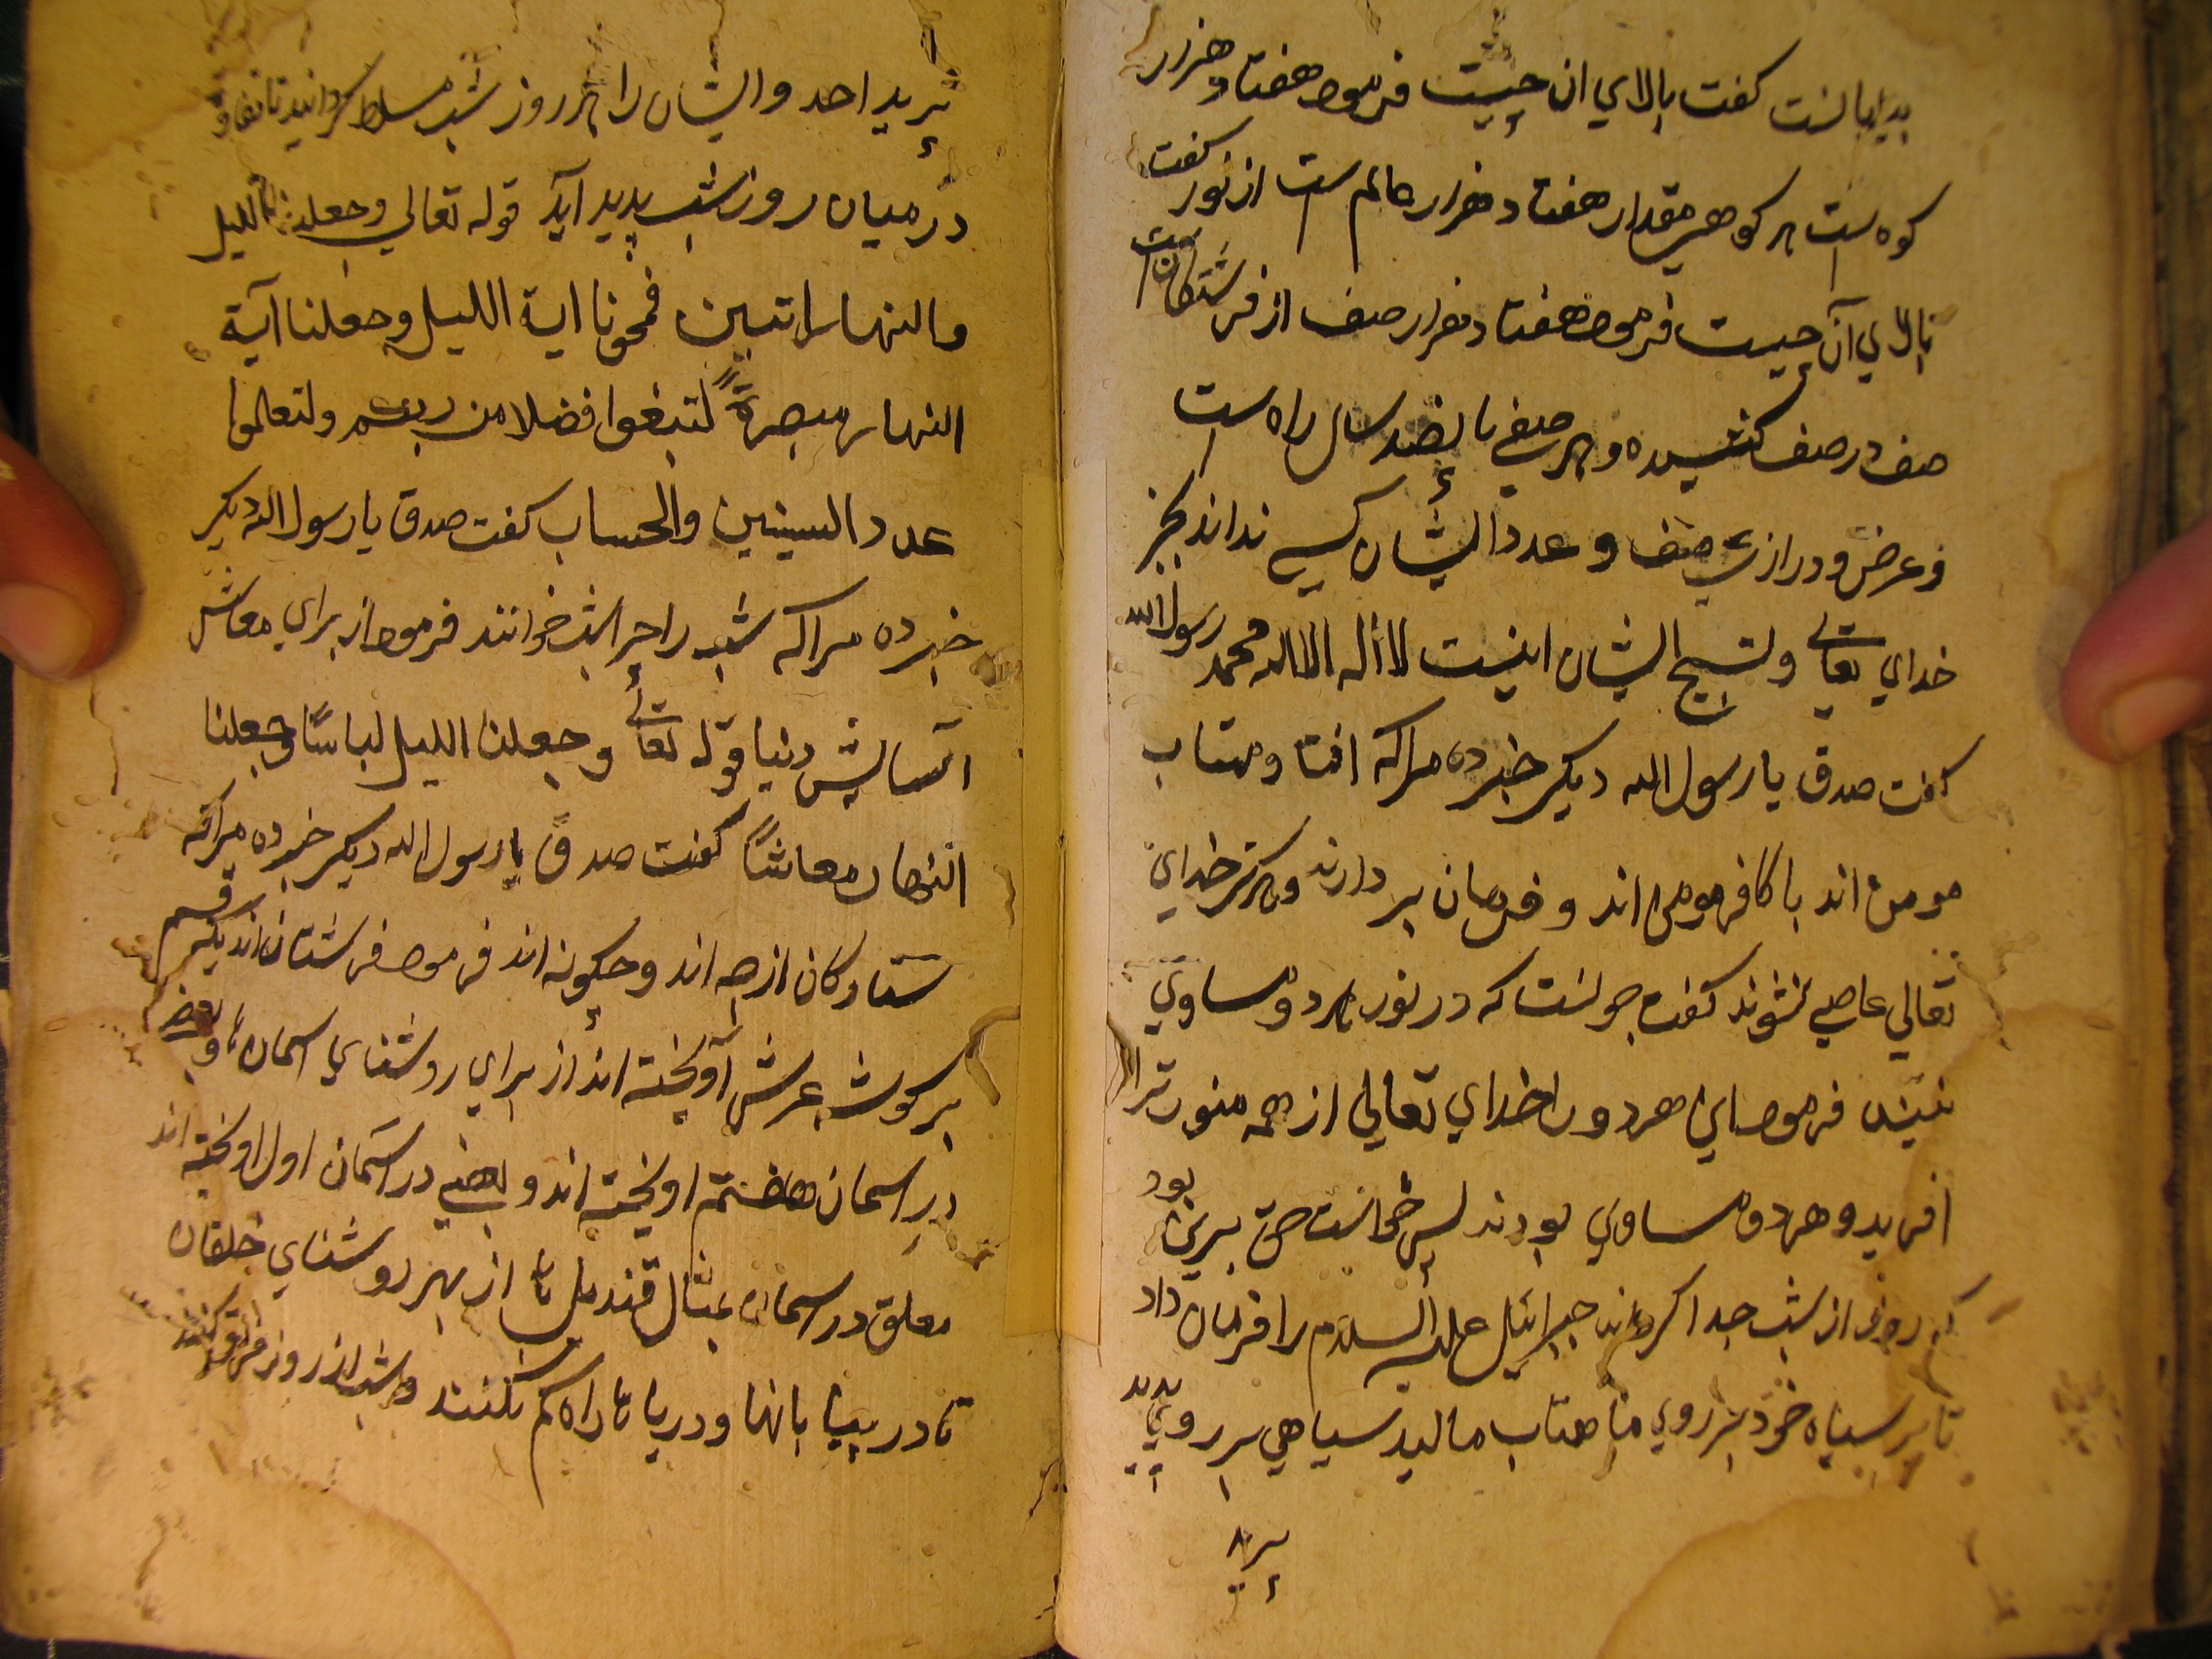 گفت بالاي ان چیست فرمود هفتاد هزار
کوه است هر کوهي مقدار هفتاد هزار عالم است از نور گفت
بالاي آن چیست فرمود هفتاد هزار صف از فرشتکان است
صف در صف کشیده و هر صفي پانصد سال راه است
و عرض و درازي صف و عدد ایشان کسي نداند بجز
خداي تعالي و تسبیح ایشان اینست لا اله الا الله محمد رسول الله
کفت صدق یا رسول الله دیکر خبر ده مرا که افتاب و مهتاب
مومن اند یا کافر مومن اند و فرمان بردارند و هرکز خداي
تعالي عاصي نشوند کفت چونست که در نور هر دو مساوي
نیند فرمود این هر دو را خداي تعالي از همه منور تر
افرید و هر دو مساوي بودند پس خواست حق برین بود
که روز از شب جدا کرداند جبرائیل علیه السلام را فرمان داد
تا پر سیاه خود بر روي ماهتاب مالید سیاهي بر روي پدید
در میان روز شب پدید آید قوله تعالي وجعلنا اللیل
والنهار ایتین فمحونا ایة اللیل وجعلنا آیة
النهار مبصرة لتبتغوا فضلا من ربکم ولتعلموا
عدد السینین والحساب کفت صدق یا رسول الله دیکر
خبر ده مرا که شب را چرا شب خوانند فرمود از براي معاش
آسایش دنیا قوله تعالي وجعلنا اللیل لباسًا وجعلنا
النهار معاشًا کفت صدق یا رسول الله دیکر خبر ده مرا که
ستارکان از چه اند و چکونه اند فرمود فرشتان اند یک قسم
بر کوشه عرش آویخته اند از براي روشناي اسمان و بعضي
در اسمان هفتم اویخته اند و بعضي در اسمان اول اویخته اند
معلق در اسمان بمثال قندیل ها از بهر روشناي خلقان
تا در بیابانها و دریا ها راه کم نکنند و شب از روز فرق کنند